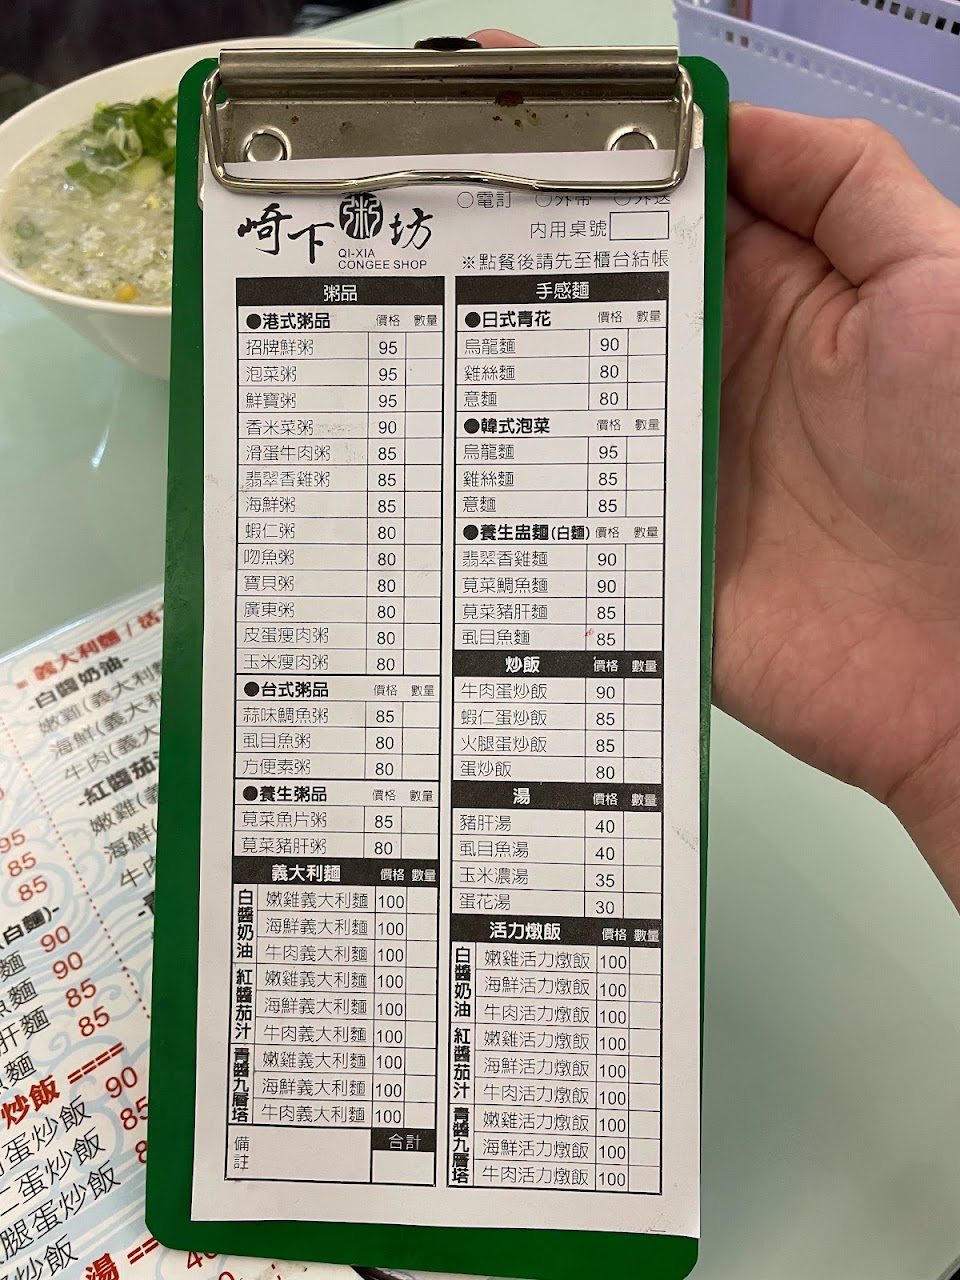 崎下粥坊
QI-XIA
CONGEE SHOP
○電訂 ○外帶 ○外送
內用桌號
※點餐後請先至櫃台結帳
粥品
●港式粥品 價格 數量
招牌鮮粥 95
泡菜粥 95
鮮寶粥 95
香米菜粥 90
滑蛋牛肉粥 85
翡翠香雞粥 85
海鮮粥 85
蝦仁粥 80
吻魚粥 80
寶貝粥 80
廣東粥 80
皮蛋瘦肉粥 80
玉米瘦肉粥 80
●台式粥品 價格 數量
蒜味鯛魚粥 85
虱目魚粥 80
方便素粥 80
●養生粥品 價格 數量
莧菜魚片粥 85
莧菜豬肝粥 80
義大利麵 價格 數量
白醬奶油
嫩雞義大利麵 100
海鮮義大利麵 100
牛肉義大利麵 100
紅醬茄汁
嫩雞義大利麵 100
海鮮義大利麵 100
牛肉義大利麵 100
青醬九層塔
嫩雞義大利麵 100
海鮮義大利麵 100
牛肉義大利麵 100
備註
合計
手感麵
●日式青花 價格 數量
烏龍麵 90
雞絲麵 80
意麵 80
●韓式泡菜 價格 數量
烏龍麵 95
雞絲麵 85
意麵 85
●養生盅麵(白麵) 價格 數量
翡翠香雞麵 90
莧菜鯛魚麵 90
莧菜豬肝麵 85
虱目魚麵 85
炒飯 價格 數量
牛肉蛋炒飯 90
蝦仁蛋炒飯 85
火腿蛋炒飯 85
蛋炒飯 80
湯 價格 數量
豬肝湯 40
虱目魚湯 40
玉米濃湯 35
蛋花湯 30
活力燉飯 價格 數量
白醬奶油
嫩雞活力燉飯 100
海鮮活力燉飯 100
牛肉活力燉飯 100
紅醬茄汁
嫩雞活力燉飯 100
海鮮活力燉飯 100
牛肉活力燉飯 100
青醬九層塔
嫩雞活力燉飯 100
海鮮活力燉飯 100
牛肉活力燉飯 100
義大利麵 / 活
-白醬奶油-
嫩雞(義大利麵
海鮮(義大利
牛肉(義大
-紅醬茄汁
嫩雞(義
海鮮(
牛肉
95
85
85
(白麵)-
麵 90
魚麵 90
肝麵 85
魚麵 85
炒飯 ====
蛋炒飯 90
仁蛋炒飯 85
腿蛋炒飯
炒飯
湯 ==